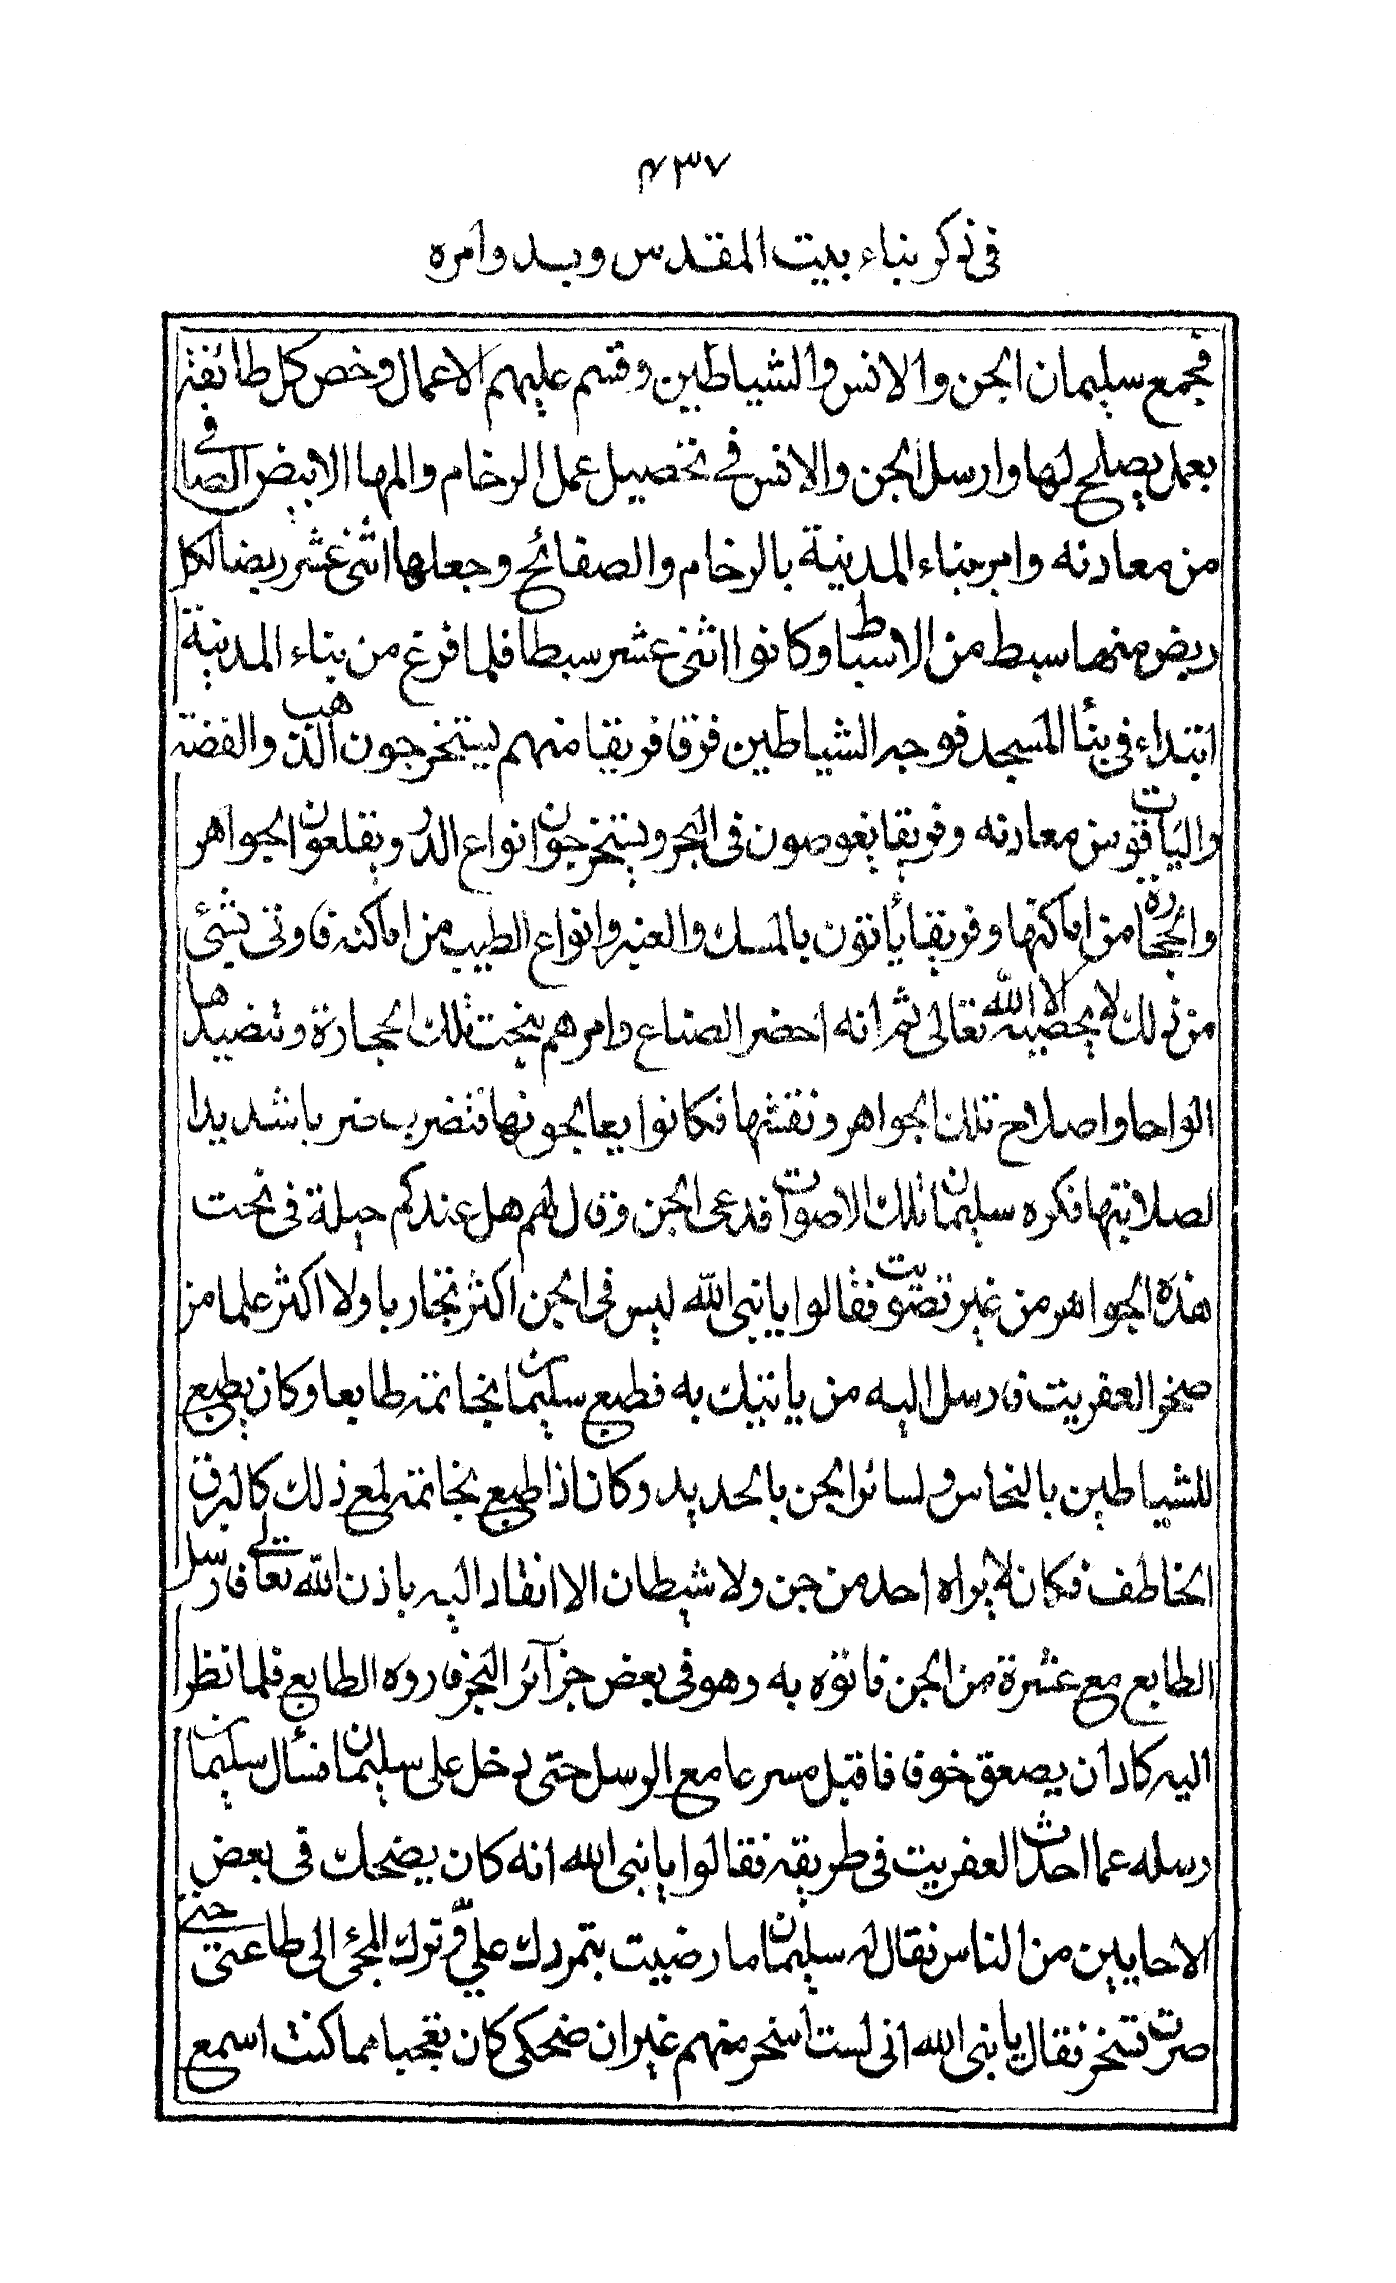 ۴۳۷
في ذكر بناء بيت المقدس وبدو امره
فجمع سليمان الجن والانس والشياطين وقسم عليهم الاعمال وخص كل طائفة
بعمل يصلح لها وارسل الجن والانس في تحصيل عمل الرخام والمها الابيض الصافي
من معادنه وامر ببناء المدينة بالرخام والصفائح وجعلها اثني عشر ربضا لكل
ربض منها سبط من الاسباط وكانوا اثني عشر سبطا فلما فرغ من بناء المدينة
ابتداء في بنأ المسجد فوجه الشياطين فرقا فريقا منهم يستخرجون الذهب والفضة
واليياقوت من معادنه وفريقا يغوصون في البحر ويستخرجون انواع الدر ويقلعون الجواهر
والحجارة من اماكنها وفريقا يأتون بالمسك والعنبر وانواع الطيب من اماكنه فاوتى بشئ
من ذلك لا يحصيه الا الله تعالى ثم انه احضر الصناع وامرهم بنحت تلك الحجارة وتنضيدها
الواحا واصلاح تلك الجواهر ونقشها فكانوا يعالجونها فتضرب ضربا شديدا
لصلابتها فكره سليمان تلك الاصوات فدعى الجن وقال لهم هل عندكم حيلة في نحت
هذه الجواهر من غير تصويت فقالوا يا نبي الله ليس في الجن اكثر تجاربا ولا اكثر علما من
صخر العفريت فارسل اليه من يأتيك به فطبع سليمان بخاتمه طابعا وكان يطبع
للشياطين بالنحاس ولسائر الجن بالحديد وكان اذا طبع بخاتمه لمع ذلك كالبرق
الخاطف فكان لا يراه احد من جن ولا شيطان الا انقاد اليه باذن الله تعالى فارسل
الطابع مع عشرة من الجن فاتوه به وهو في بعض جزآئر البحر فاروه الطابع فلما نظر
اليه كاد ان يصعق خوفا فاقبل مسرعا مع الرسل حتى دخل على سليمان فسأل سليمان
رسله عما احدث العفريت في طريقه فقالوا يا نبي الله انه كان يضحك في بعض
الاحايين من الناس فقال له سليمان ما رضيت بتمردك علي وترك المجئ الى طاعتي حتى
صرت تسخر فقال يا نبي الله اني لست اسخر منهم غير ان ضحكي كان تعجبا مما كنت اسمع